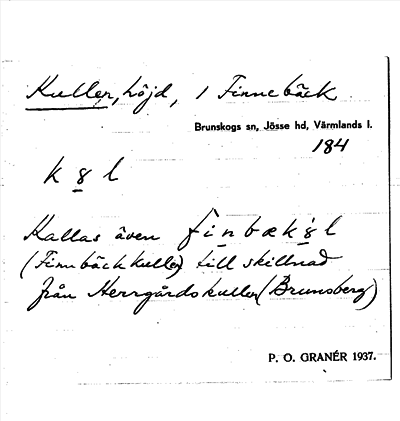 Kullen, höjd, 1 Finnebäck
Brunskogs sn, Jösse hd, Värmlands l.
184
k 8 l
Kallas även finbæk8l
(Finnbäckkullen) till skillnad
från Herrgårdskullen (Brunsberg)
P. O. GRANÉR 1937.